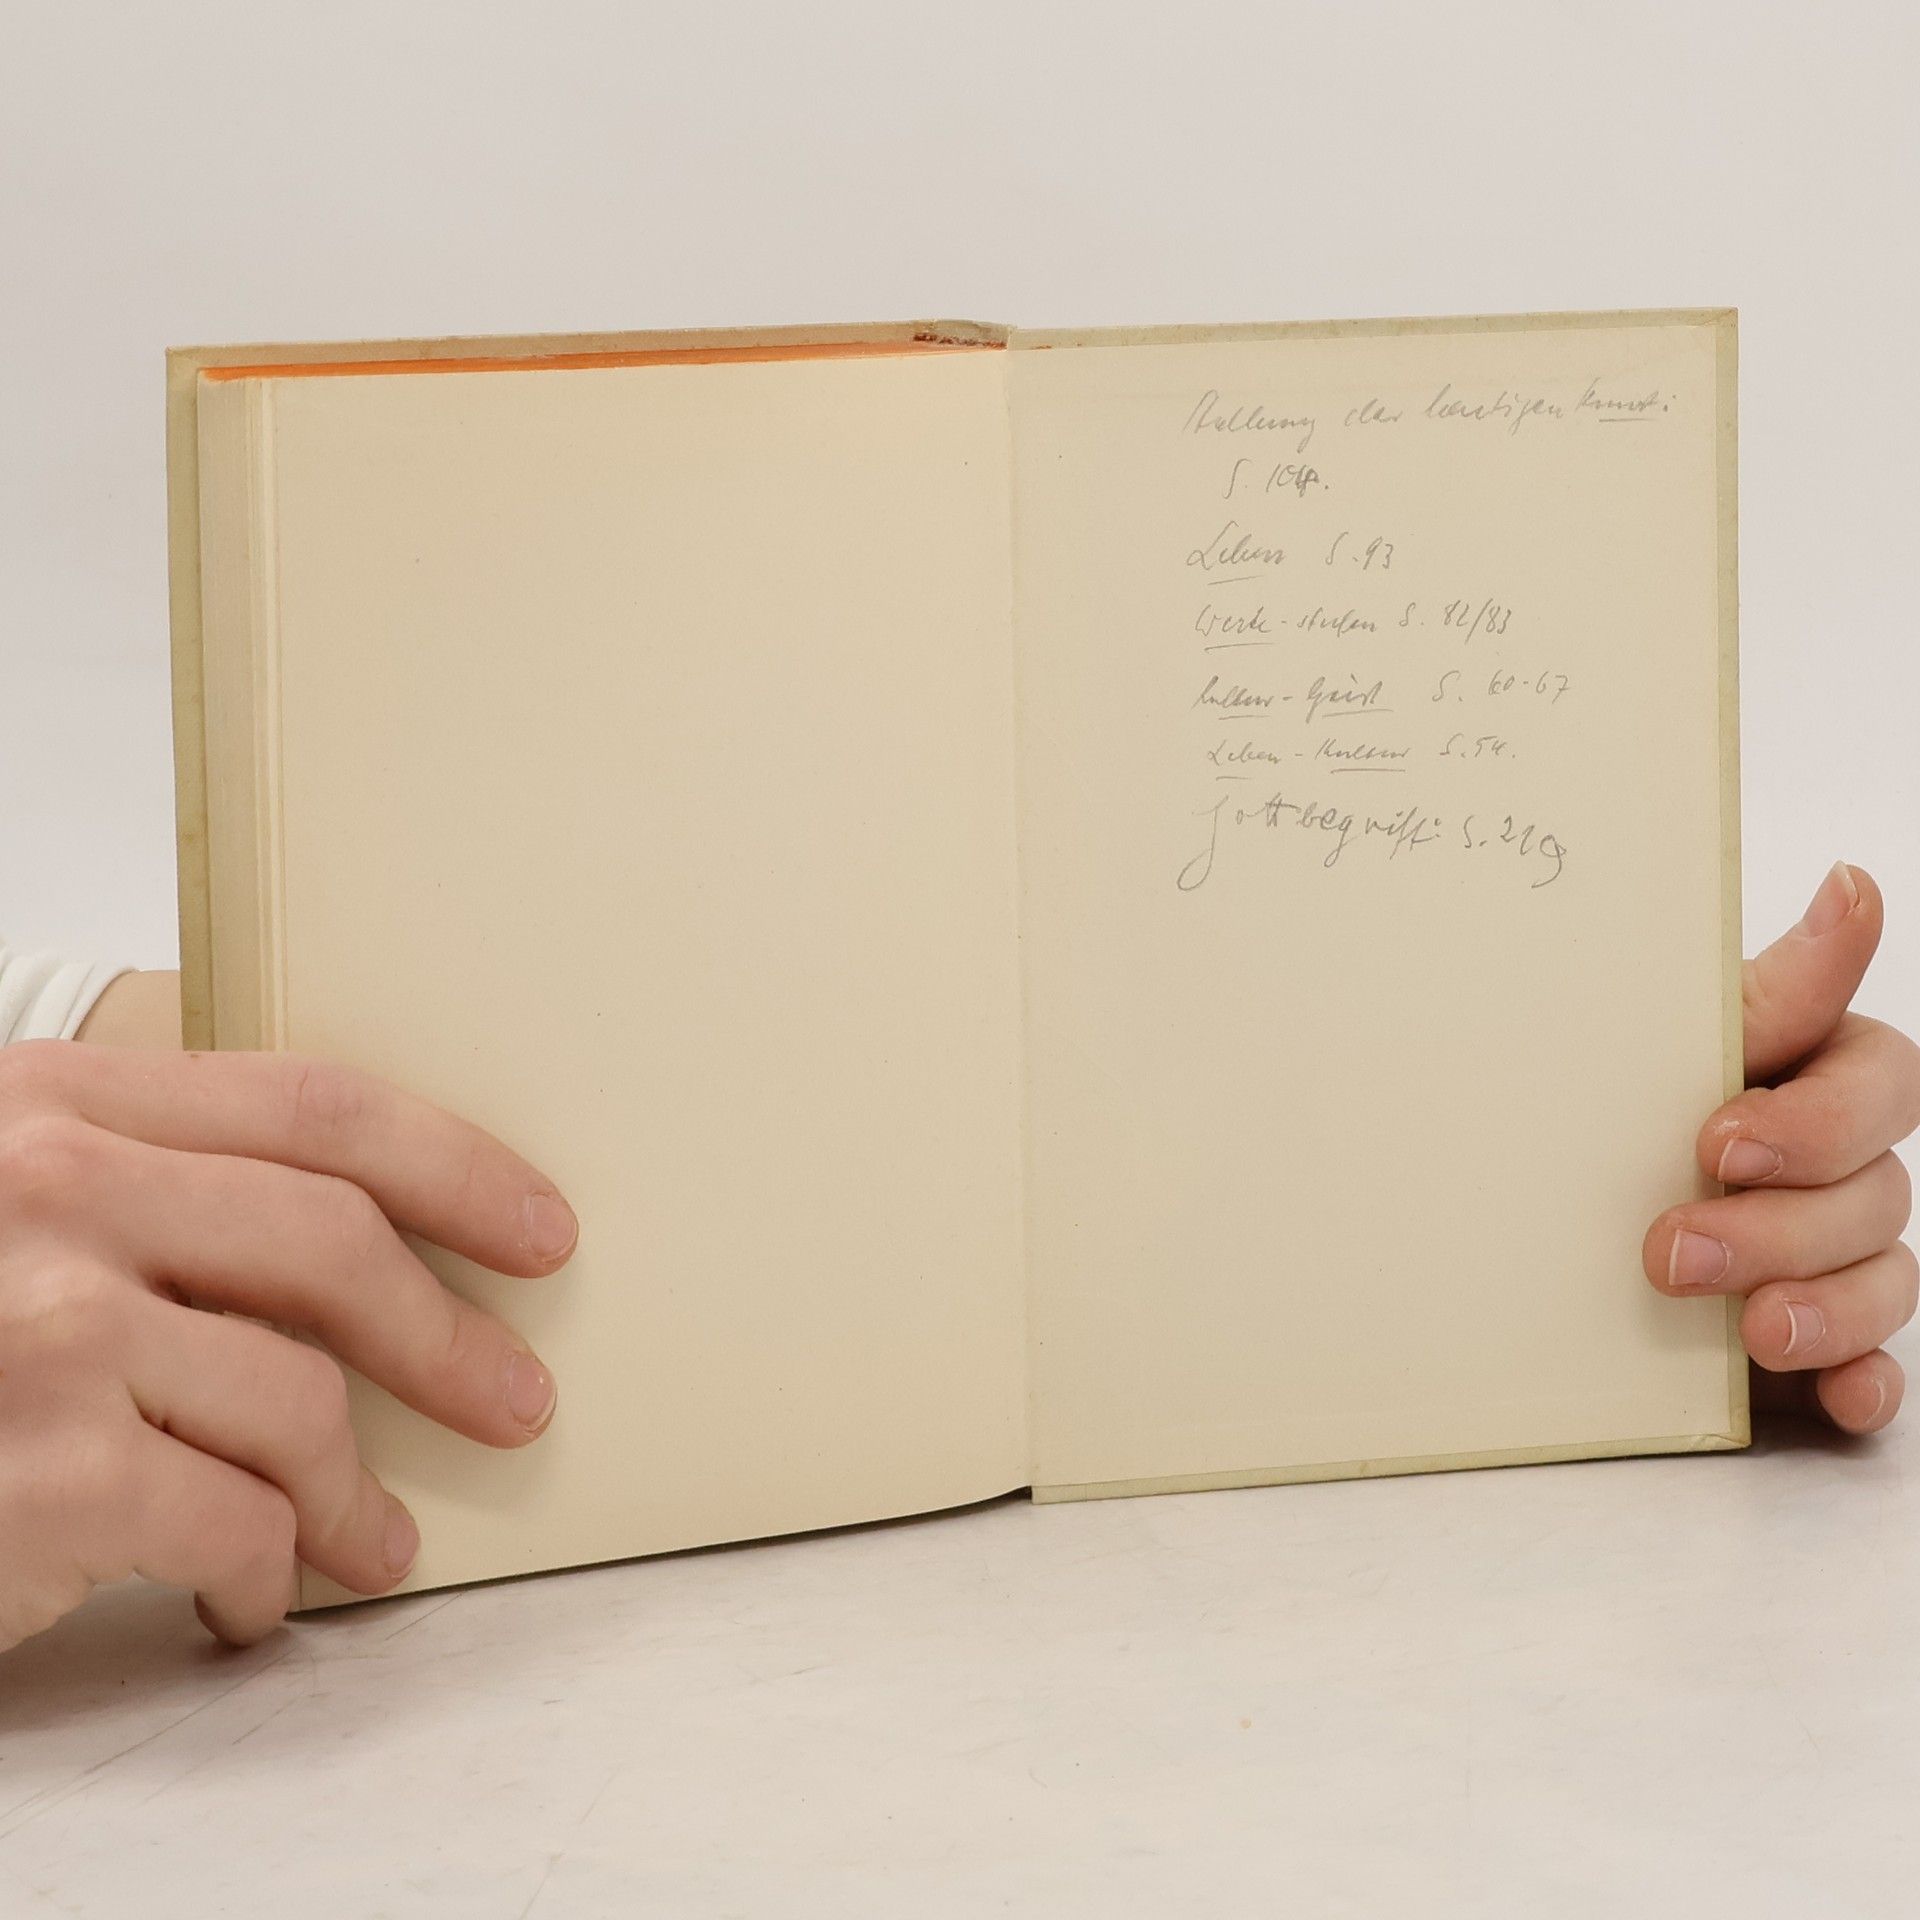 Stellung der heutigen Kunst:
S. 104.
Leben S. 93
Werte-stufen S. 82/83
Kultur - Geist S. 60-67
Leben - Kultur S. 54.
Gottbegriff: S. 219